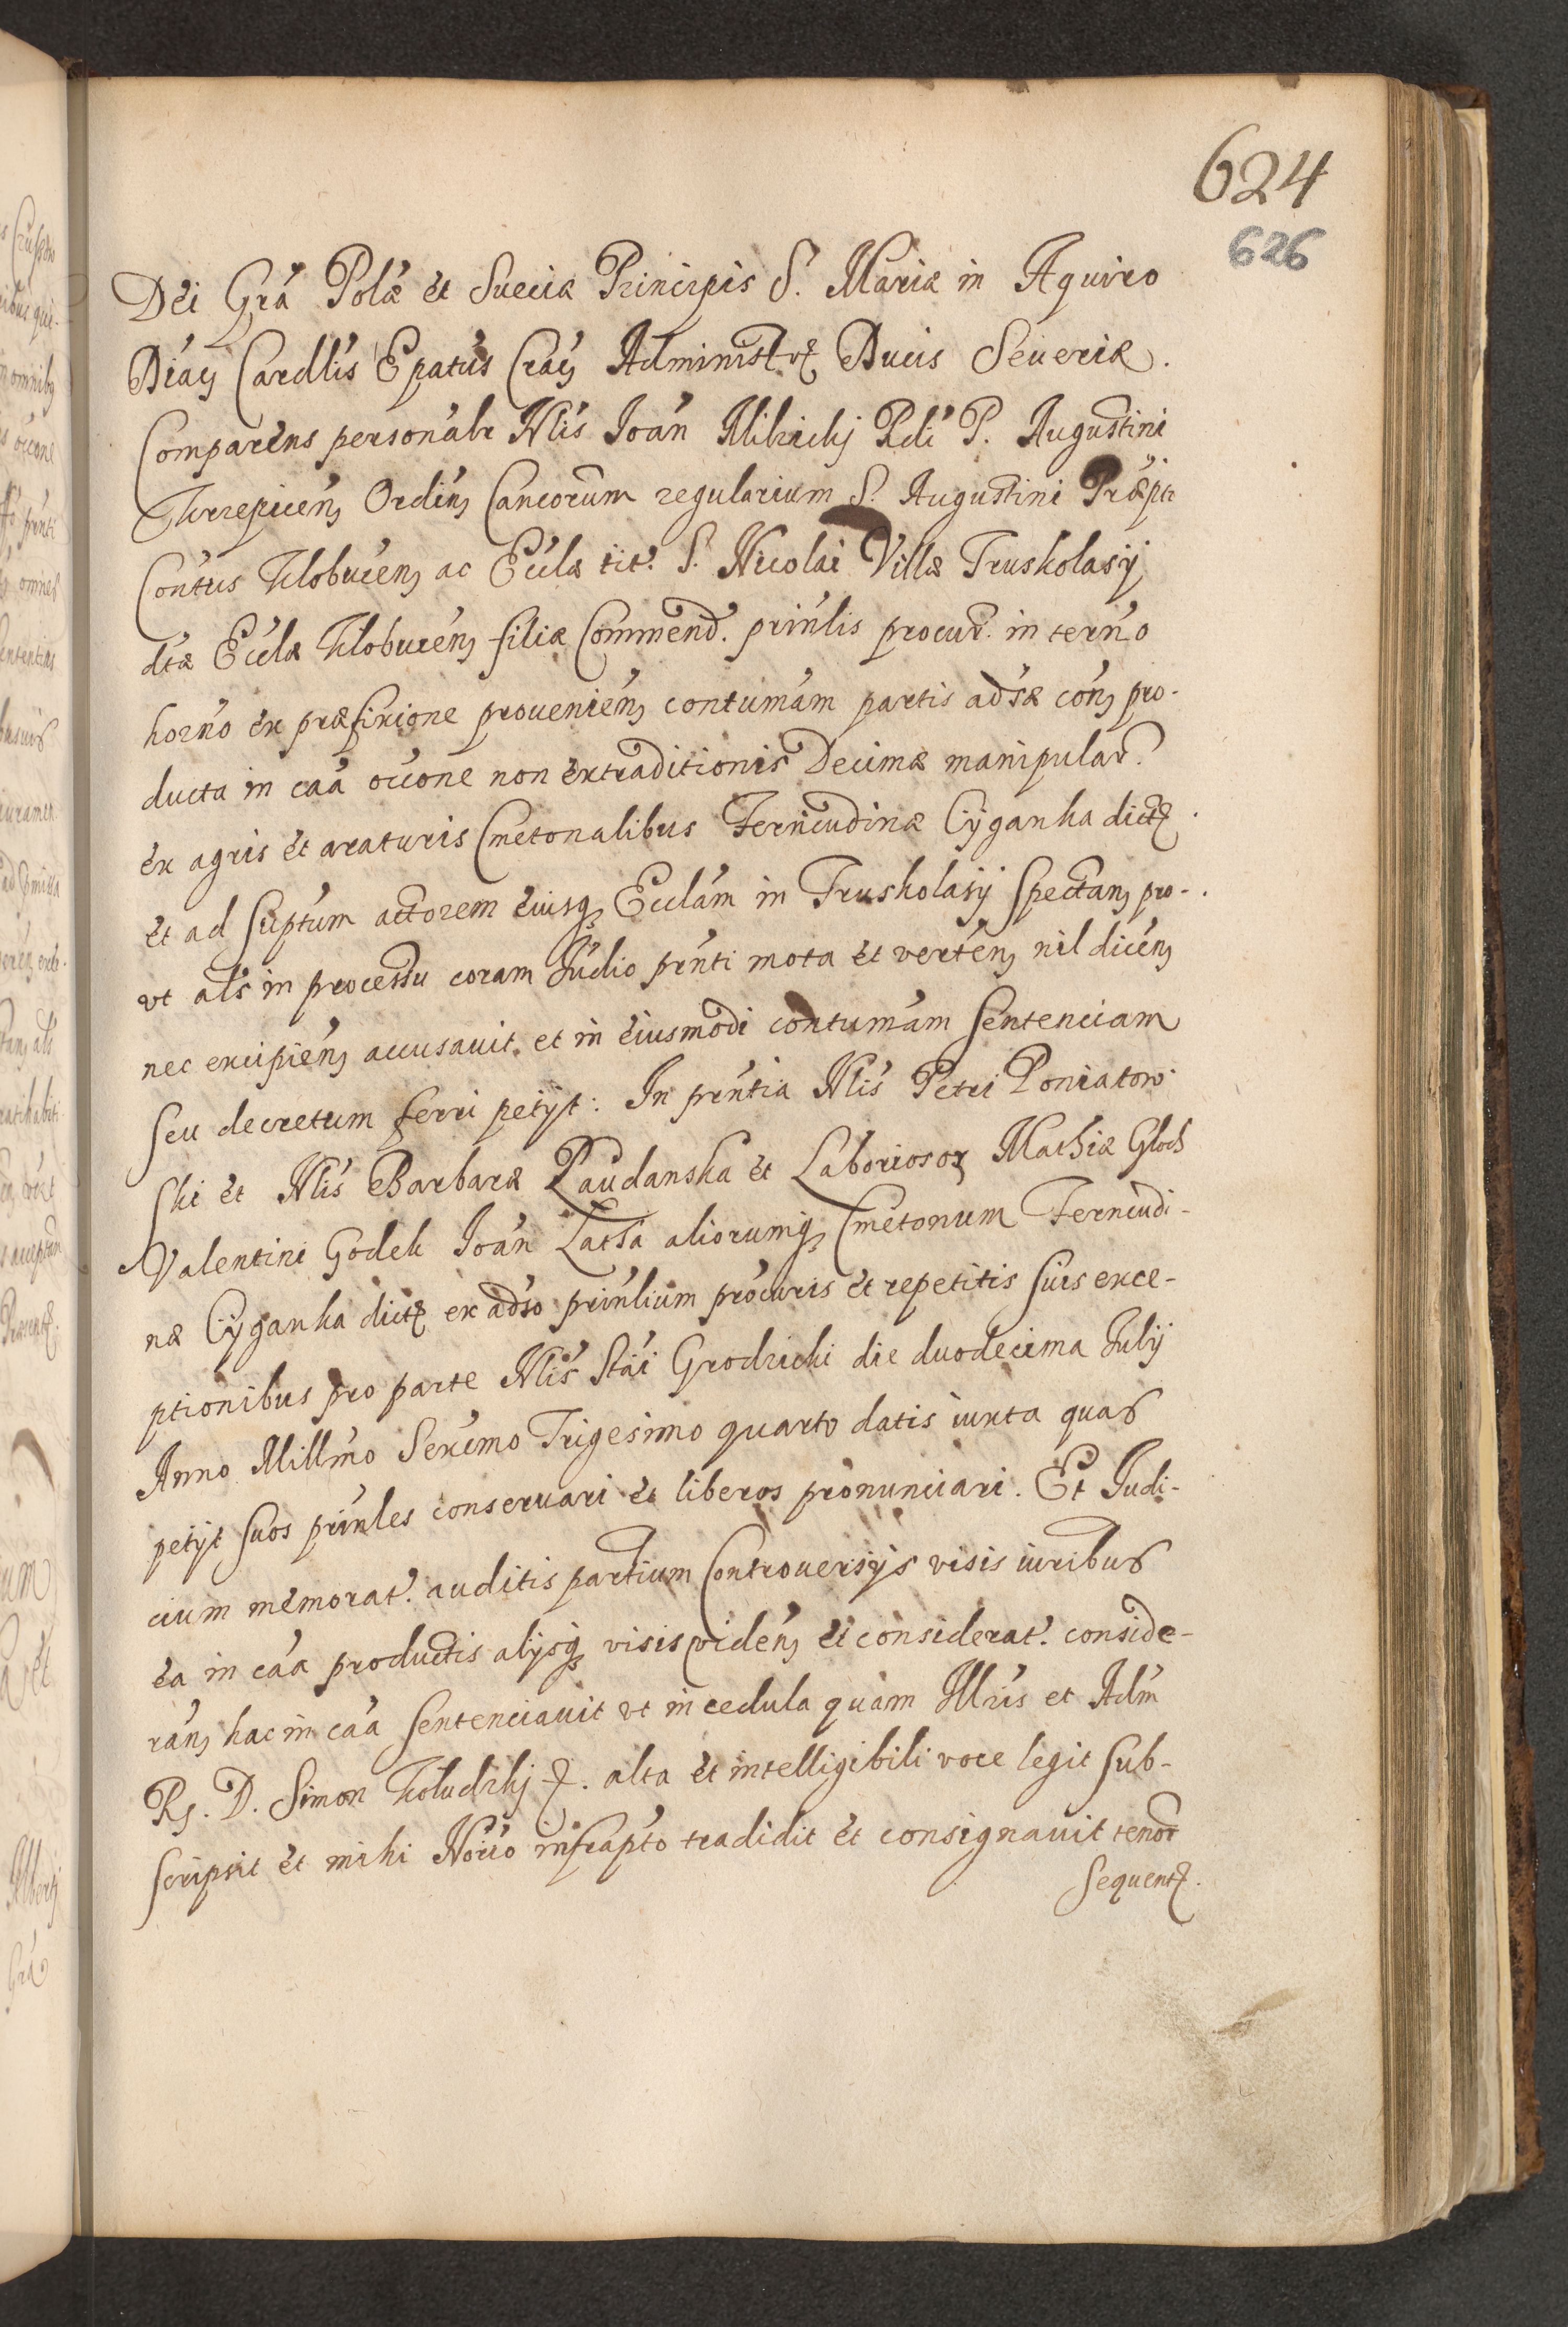 624
626
Dei Grá Polæ et Sueciæ Principis S. Mariæ in Aquiro
Diaç Cardlis Epatus Craç Administ. Ducis Seueriæ.
Comparens personalr Nlis Joan Milzickj Rdi P. Augustini
Ordinç Cancorum regularium S. Augustini Præpti
Contus Klobucenç ac Eccla tit. S. Nicolai Villæ Truskolasÿ
dtæ Ecclæ Klobucenç filiæ Commend. prinlis procur. in termo
horno ex præfixione proueniénç contumám partis adsæ conç pro-
ducta in caá occone non extraditionis Decimæ manipular.
ex agris et araturis Cmetonalibus Fernicudinæ Cÿganka dictę
et ad suptum actorem eiusq Ecclám in Truskolasÿ spectanç pro-
vt als in processu coram Judio prnti mota et vertenç nil dicenç
nec excipienç accusauit et in eiusmodi contumám sentenciam
seu decretum ferri petÿt: In prntia Nlis Petri Poniatow
ski et Nlis Barbaræ Paudanska et Laborioso Mathiæ Gloch
Valentini Godek Joán Latsa aliorumq Cmetonum Fernicudi-
næ Cÿganka dictę ex adso prinlium procuris et repetitis suis exce-
ptionibus pro parte Nlis Stái Grodzicki die duodecima Julÿ
Anno Millmo Sexcmo Trigesimo quarto datis iuxta quas
petÿt suos prinles conseruari et liberos pronunciari. Et Judi-
cium memorat. auditis partium Controuersÿs visis iuribus
ea in caá productis alÿsq visis videnç et considerat. conside-
ranç hac in caá sentenciauit vt in cedula quam Illris et Adm
Rs. D. Simon Koludzkj. alta et intelligibili voce legit sub-
scripsit et mihi Norio infrapto tradidit et consignauit tenor
sequentę.